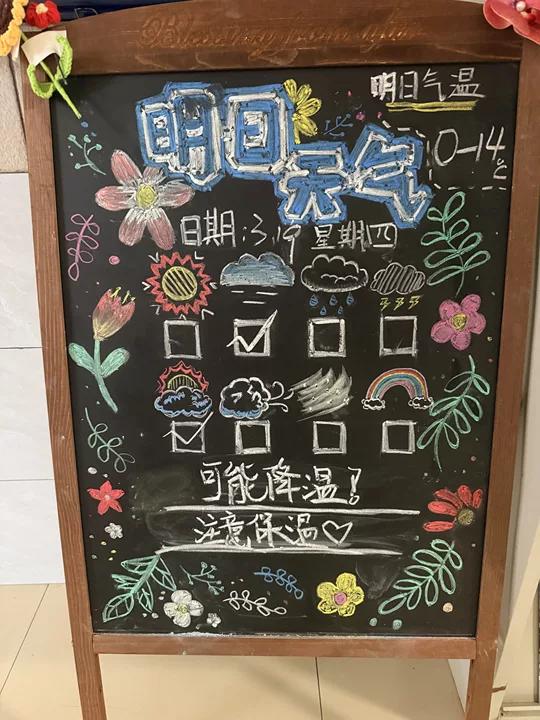 明日气温
明日天气
0-14℃
日期:3.19 星期四
可能降温!
注意保温♡